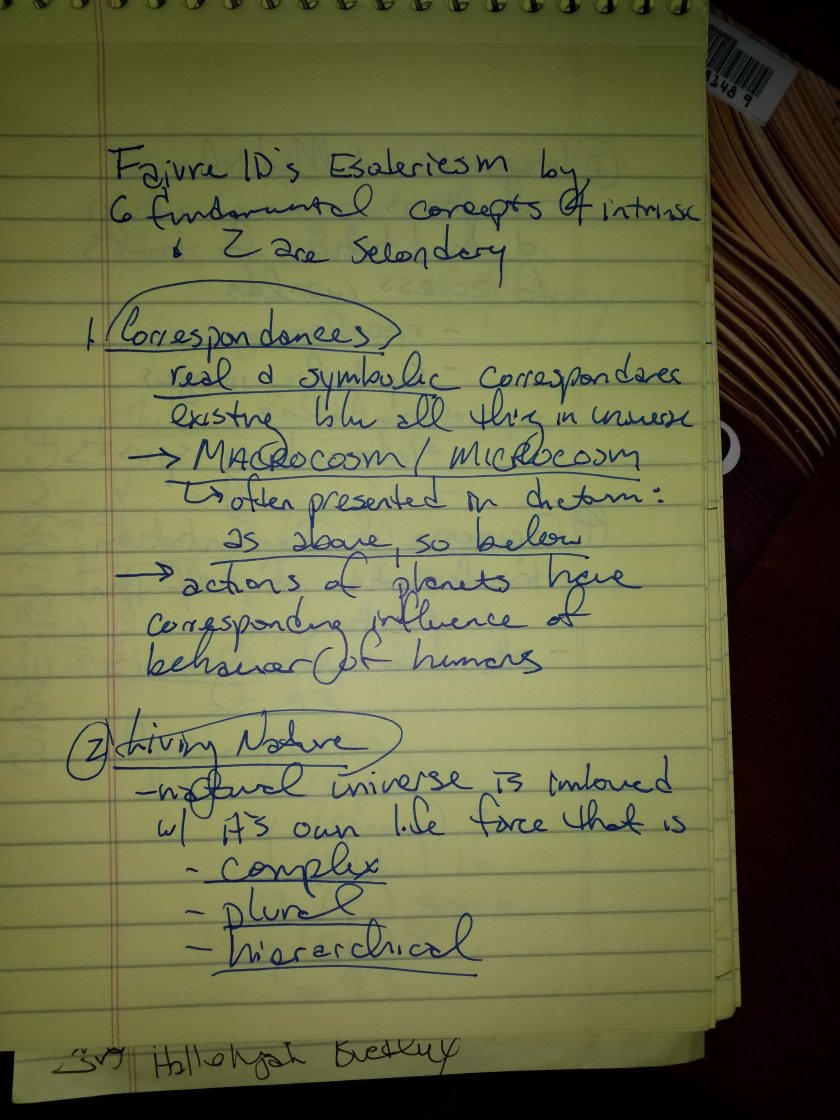 Faivre ID's Esotericism by
6 fundamental concepts 4 intrinsc
& 2 are Secondary
1. Correspondances
real & symbolic correspondances
existing b/w all thing in universe
→ MACROCOSM / MICROCOSM
↳ often presented in dictum:
as above, so below
→ actions of planets have
corresponding influence of
behavior of humans
2 Living Nature
- natural universe is imbued
w/ it's own life force that is
- complex
- plural
- hierarchical
Hallelujah
9148 9